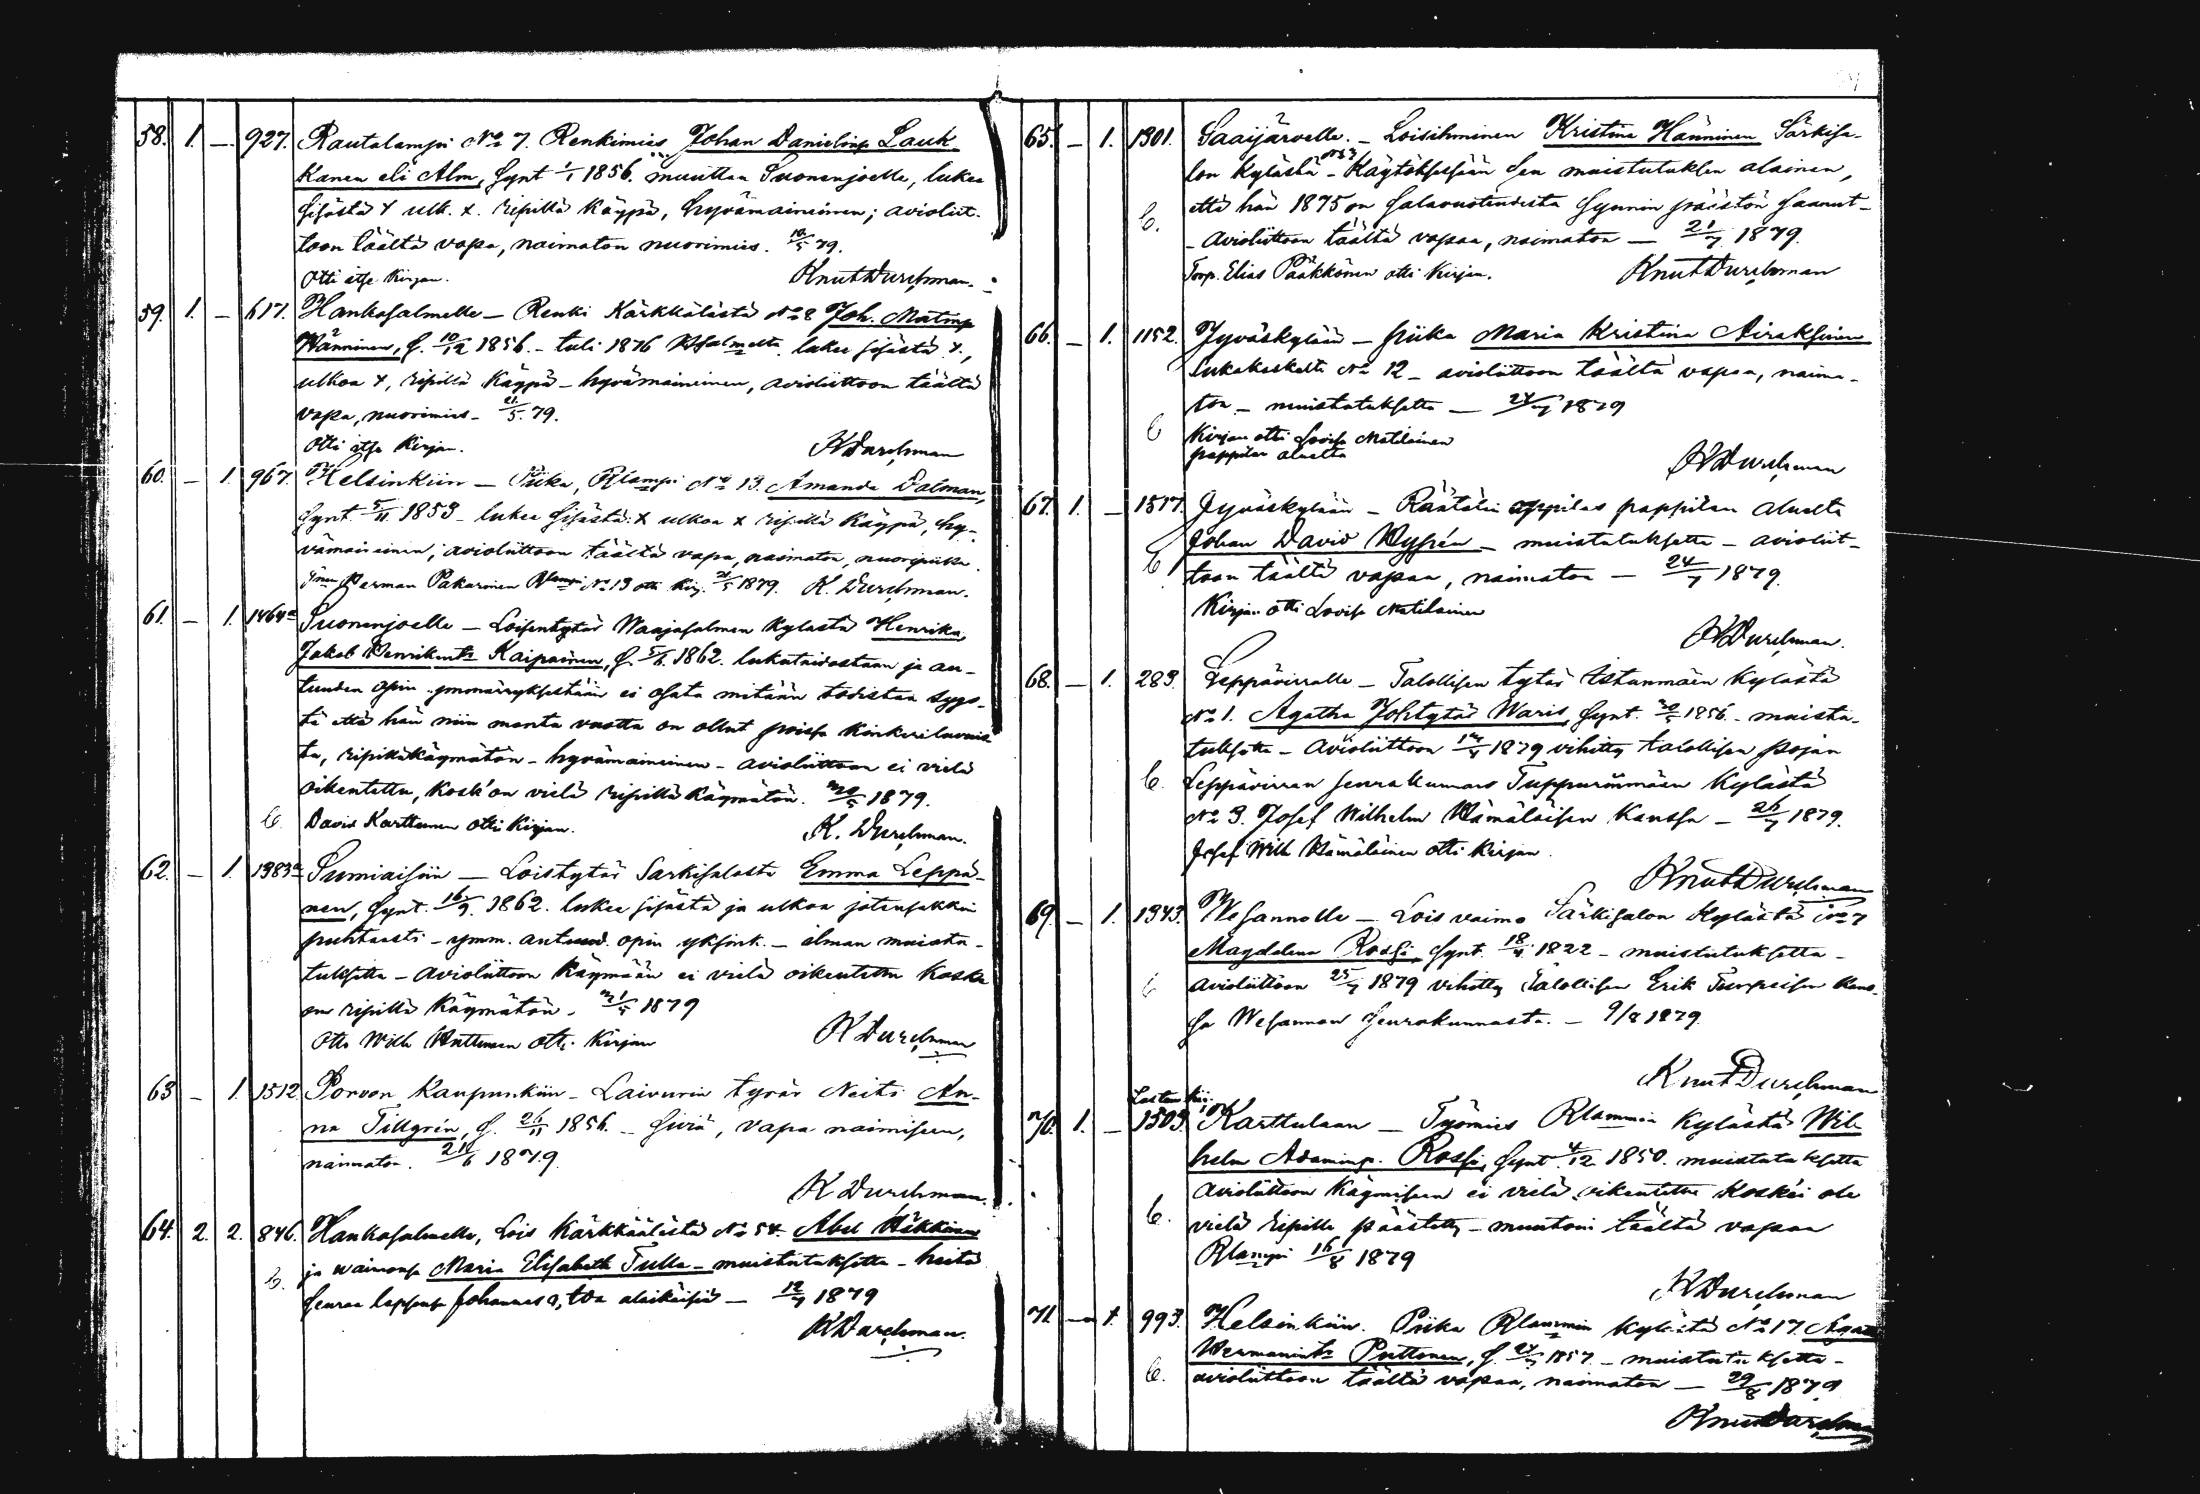 58. 1. — 927. Rautalampi No 7. Renkimies Johan Danielinp. Lauk-
kanen eli Alm, synt 1/1 1856. muuttaa Suonenjoelle, lukee
sisästä x ulk. x. ripillä käypä, hyvämaineinen; avioliit-
toon täältä vapa, naimaton nuorimies. 10/5 79.
Otti itse kirjan. Knut Durchman.
59. 1. — 617. Hankasalmelle — Renki Kärkkälästä No 8 Joh. Matinp
Hänninen, s. 10/12 1856. — tuli 1876 lukee sisästä x.,
ulkoa x, ripillä käypä — hyvämaineinen, avioliittoon täältä
vapa, nuorimies — 21/5. 79.
Otti itse kirjan. K Durchman
60. — 1. 967. Helsinkiin — Piika, Rlampi No 13. Amanda Dalman,
synt. 5/11 1853 — lukee sisästä x ulkoa x ripillä käypä, hy-
vämaineinen, avioliittoon täältä vapa, naimaton, nuoripiika.
Herman Pakarinen Rlampi No 13 otti kirj. 21/5 1879. K. Durchman.
61. — 1. 1464a Suonenjoelle — Loisentytär Waajasalmen kylästä Henrika,
Jakob Henrikintr Kaipainen, s. 5/6. 1862. lukutaidostaan ja an-
tuuden opin ymmärryksestään ei osata mitään todistaa syys-
tä että hän niin monta vuotta on ollut poissa kinkeriluvuis-
ta, ripilläkäymätön — hyvämaineinen — avioliittoon ei vielä
oikeutettu, kosk'on vielä ripillä käymätön. 1879.
b. David Karttunen otti kirjan. K. Durchman.
62. — 1. 1383a Sumiaisiin — Loistytär Särkisalosta Emma Leppä-
nen, synt. 16/9. 1862. lukee sisästä ja ulkoa jotensakkin
puhtaasti — ymm. opin yksink. — ilman muistu-
tuksetta — Avioliittoon käymään ei vielä oikeutettu koska
on ripillä käymätön. 1879
Otto Wilh kirjan K Durchman
63 — 1. 1512 Porvoon kaupunkiin — Laivurin tytär Neiti An-
na Tillgrén, s. 26/11 1856. — siviä, vapa naimiseen,
naimaton. 1879.
K Durchman.
64. 2. 2. 846. Hankasalmelle, Lois Kärkkäälästä No 54. Abel Häkkinen
b. ja waimonsa Maria Elisabeth Tulla — muistutuksetta — heitä
seuraa lapsensa Johannes alaikäisiä — 12/7 1879
K Durchman.
65. — 1. 1301. Saaijärvelle. — Loisihminen Kristina Hänninen Särkisa-
lon kylästä No 37 — Käytöksessään sen muistutuksen alainen,
että hän 1875 on salavuoteudesta synnin päästön saanut —
b. — Avioliittoon täältä vapaa, naimaton — 21/7 1879.
Torp. Elias Pääkkönen otti kirjan. Knut Durchman
66. — 1. 1152. Jyväskylään — piika Maria Kristina Airaksinen
No 12 — avioliittoon täältä vapaa, naima-
ton — muistutuksetta — 24/7 1879
b Kirjan otti Lovisa Matilainen
pappilan alueelta
K Durchman
67. 1. — 1517. Jyväskylään — Räätälin oppilas pappilan alueelta
Johan David Nyssén — muistutuksetta — avioliit-
b toon täältä vapaa, naimaton — 24/7 1879.
Kirjan otti Lovisa Matilainen
K Durchman.
68. — 1. 283. Leppävirralle — Talollisen tytär Istunmäen kylästä
No 1. Agatha Johtytär Waris, synt. 1856 — muistu-
tuksetta — Avioliittoon 1879 vihitty talollisen pojan
b. Leppävirran seurakunnan Tuppurinmäen kylästä
No 3. Josef Wilhelm Hämäläisen kanssa — 26/7 1879.
Josef Wilh Hämäläinen otti kirjan.
Knut Durchman
69. — 1. 1343. Wesannolle — Lois vaimo Särkisalon kylästä No 7
Magdalena Rossi, synt. 18/4 1822 — muistutuksetta —
b avioliittoon 25/7 1879 vihitty talollisen Erik kans-
sa Wesannon seurakunnasta. — 9/8 1879.
Knut Durchman
70. 1. — Lastenkir. 1503. Karttulaan — Työmies Rlammin kylästä Wil-
helm Adaminp. Rossi, synt. 4/12 1850. muistutuksetta
Avioliittoon käymiseen ei vielä oikeutettu kosk'ei ole
b. vielä ripille päästetty — muutoin täältä vapaa
Rlampi 16/8 1879
K Durchman
71. — 1. 993. Helsinkiin. Piika Rlammin kylästä No 17. Agata
Hermanintr Puttonen, s. 1857 — muistutuksetta —
b. avioliittoon täältä vapaa, naimaton — 29/8 1879
Knut Durchman